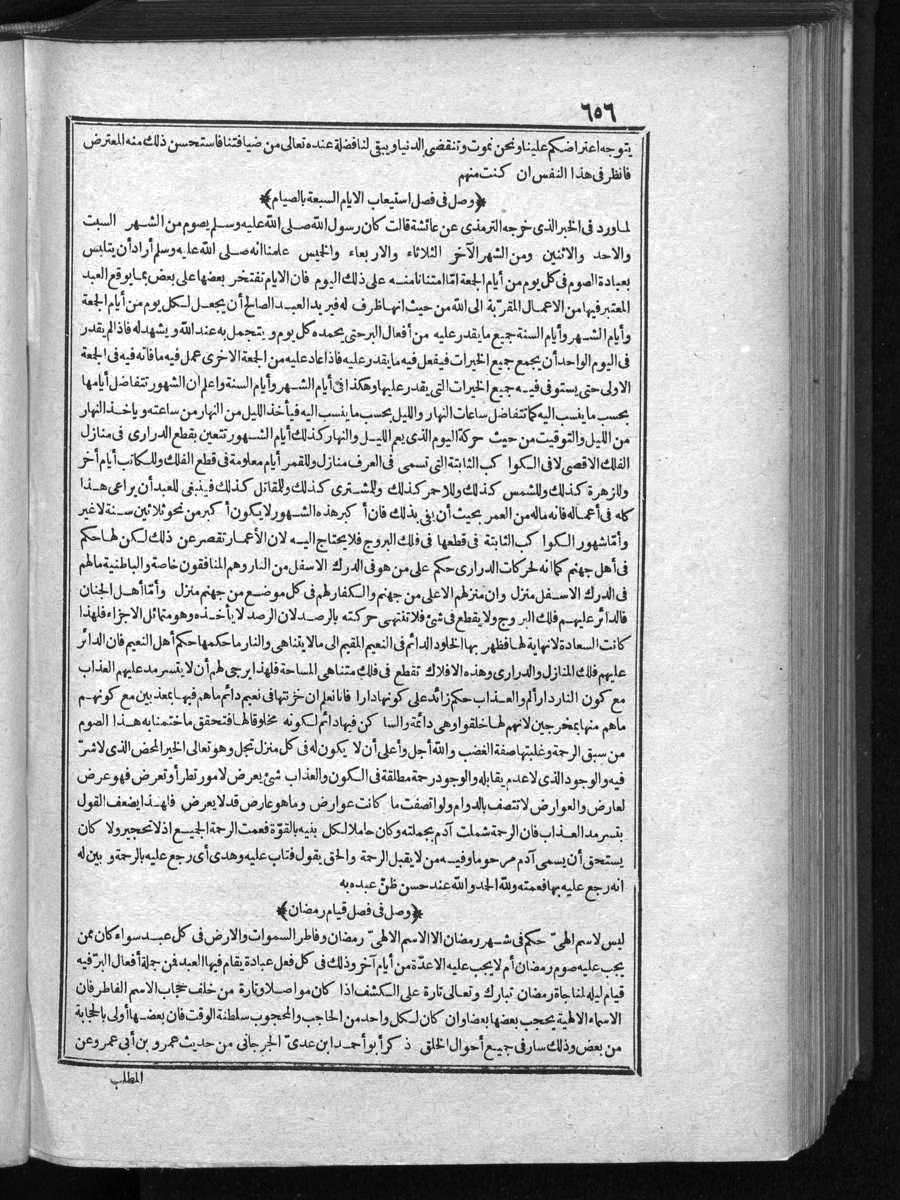 ٦٥٦
يتوجه اعتراضكم علينا ونحن نموت وتنقضى الدنيا ويبقى لنا فضلة عنده تعالى من ضيافتنا فاستحسن ذلك منه المعترض
فانظر فى هذا النفس ان كنت منهم
﴿وصل فى فصل استيعاب الايام السبعة بالصيام﴾
لما ورد فى الخبر الذى خرجه الترمذى عن عائشة قالت كان رسول الله صلى الله عليه وسلم يصوم من الشهر السبت
والاحد والاثنين ومن الشهر الآخر الثلاثاء والاربعاء والخميس علمنا انه صلى الله عليه وسلم أراد أن يتلبس
بعبادة الصوم فى كل يوم من أيام الجمعة امّا امتنانا منه على ذلك اليوم فان الايام تفتخر بعضها على بعض بما يوقع العبد
المعتبر فيها من الاعمال المقرّبة الى الله من حيث انها ظرف له فيريد العبد الصالح أن يجعل لكل يوم من أيام الجمعة
وأيام الشهر وأيام السنة جميع ما يقدر عليه من أفعال البر حتى يحمده كل يوم و يتجمل به عند الله و يشهد له فاذا لم يقدر
فى اليوم الواحد أن يجمع جميع الخيرات فيفعل فيه ما يقدر عليه فاذا عاد عليه من الجمعة الاخرى عمل فيه ما فاته فيه فى الجمعة
الاولى حتى يستوفى فيه جميع الخيرات التى يقدر عليها وهكذا فى أيام الشهر وأيام السنة واعلم ان الشهور تتفاضل أيامها
بحسب ما ينسب اليه كما تتفاضل ساعات النهار والليل بحسب ما ينسب اليه فيأخذ الليل من النهار من ساعته و ياخذ النهار
من الليل والتوقيت من حيث حركة اليوم الذى يعم الليل والنهار كذلك أيام الشهور تتعين بقطع الدرارى فى منازل
الفلك الاقصى لا فى الكواكب الثابتة التى تسمى فى العرف منازل وللقمر أيام معلومة فى قطع الفلك وللكاتب أيام أخر
وللزهرة كذلك وللشمس كذلك وللاحمر كذلك وللمشترى كذلك وللمقاتل كذلك فينبغى للعبد أن يراعى هذا
كله فى أعماله فانه ماله من العمر بحيث أن يفى بذلك فان أكبر هذه الشهور لا يكون أكبر من نحو ثلاثين سنة لا غير
وأمّا شهور الكواكب الثابتة فى قطعها فى فلك البروج فلا يحتاج اليه لان الأعمار تقصر عن ذلك لكن لها حكم
فى أهل جهنم كما انه لحركات الدرارى حكم على من هو فى الدرك الاسفل من النار وهم المنافقون خاصة والباطنية مالهم
فى الدرك الاسفل منزل وان منزلهم الاعلى من جهنم والكفار لهم فى كل موضع من جهنم منزل وأمّا أهل الجنان
فالدائر عليهم فلك البروج ولا يقطع فى شئ فلا تنتهى حركته بالرصد لان الرصد لا يأخذه وهو متماثل الاجزاء فلهذا
كانت السعادة لانهاية لها فظهر بها الخلود الدائم فى النعيم المقيم الى ما لا يتناهى والنار ما حكمها حكم أهل النعيم فان الدائر
عليهم فلك المنازل والدرارى وهذه الافلاك تقطع فى فلك متناهى المساحة فلهذا يرجى لهم أن لا يتسرمد عليهم العذاب
مع كون النار دار ألم والعذاب حكم زائد على كونها دارا فانا نعلم ان خزنتها فى نعيم دائم ماهم فيها بمعذبين مع كونهم
ماهم منها بمخرجين لانهم لها خلقوا وهى دائمة والساكن فيها دائم لكونه مخلوقا لها فتحقق ما ختمنا به هذا الصوم
من سبق الرحمة وغلبتها صفة الغضب والله أجل وأعلى أن لا يكون له فى كل منزل تجل وهو تعالى الخير المحض الذى لا شرّ
فيه والوجود الذى لا عدم يقابله والوجود رحمة مطلقة فى الكون والعذاب شئ يعرض لامور تطرأ وتعرض فهو عرض
لعارض والعوارض لا تتصف بالدوام ولو اتصفت ما كانت عوارض وما هو عارض قد لا يعرض فلهذا يضعف القول
بتسرمد العذاب فان الرحمة شملت آدم بجملته وكان حاملا لكل بنيه بالقوّة فعمت الرحمة الجميع اذ لا تحجير ولا كان
يستحق أن يسمى آدم مرحوما وفيه من لا يقبل الرحمة والحق يقول فتاب عليه وهدى أى رجع عليه بالرحمة و بين له
انه رجع عليه بها فعمته ولله الحمد والله عند حسن ظنّ عبده به
﴿وصل فى فصل قيام رمضان﴾
ليس لاسم الهىّ حكم فى شهر رمضان الا الاسم الالهىّ رمضان وفاطر السموات والارض فى كل عبد سواء كان ممن
يجب عليه صوم رمضان أم لا يجب عليه الا عدّة من أيام آخر وذلك فى كل فعل عبادة يقام فيها العبد فن جملة أفعال البرّ فيه
قيام ليله لمناجاة رمضان تبارك وتعالى تارة على الكشف اذا كان مواصلا وتارة من خلف حجاب الاسم الفاطر فان
الاسماء الالهية يحجب بعضها بعضا وان كان لكل واحد من الحاجب والمحجوب سلطنة الوقت فان بعضها أولى بالحجابة
من بعض وذلك سار فى جميع أحوال الخلق ذكر أبو أحمد ابن عدىّ الجرجانى من حديث عمرو بن أبى عمرو عن
المطلب